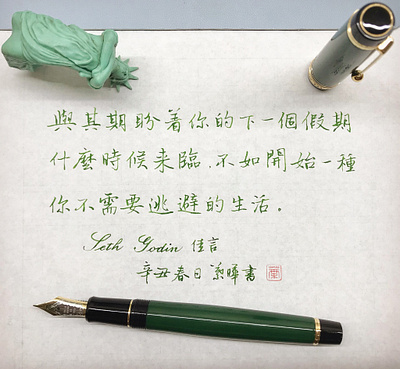 與其期盼着你的下一個假期
什麼時候来臨、不如開始一種
你不需要逃避的生活。
Seth Godin 佳言
辛丑春日 暉書